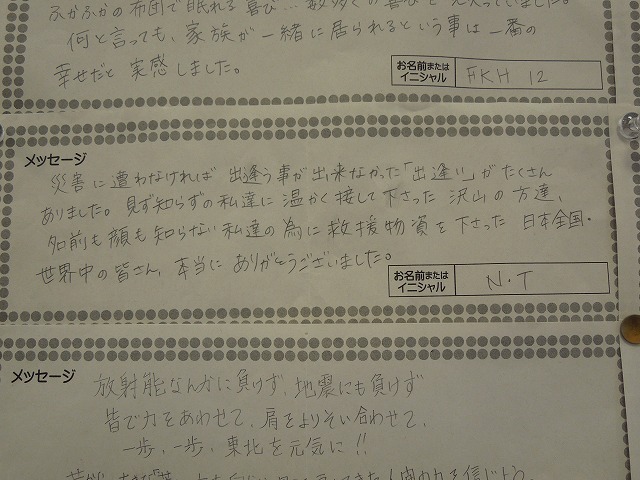 ふかふかの布団で眠れる喜び…数多くの喜び
何と言っても、家族が一緒に居られるという事は一番の
幸せだと実感しました。
お名前または
イニシャル
FKH 12
メッセージ
災害に遭わなければ出逢う事が出来なかった「出逢い」がたくさん
ありました。見ず知らずの私達に温かく接して下さった沢山の方達、
名前も顔も知らない私達の為に救援物資を下さった日本全国・
世界中の皆さん、本当にありがとうございました。
お名前または
イニシャル
N・T
メッセージ
放射能なんかに負けず、地震にも負けず
皆で力をあわせて、肩をよりそい合わせて、
一歩、一歩、東北を元気に!!